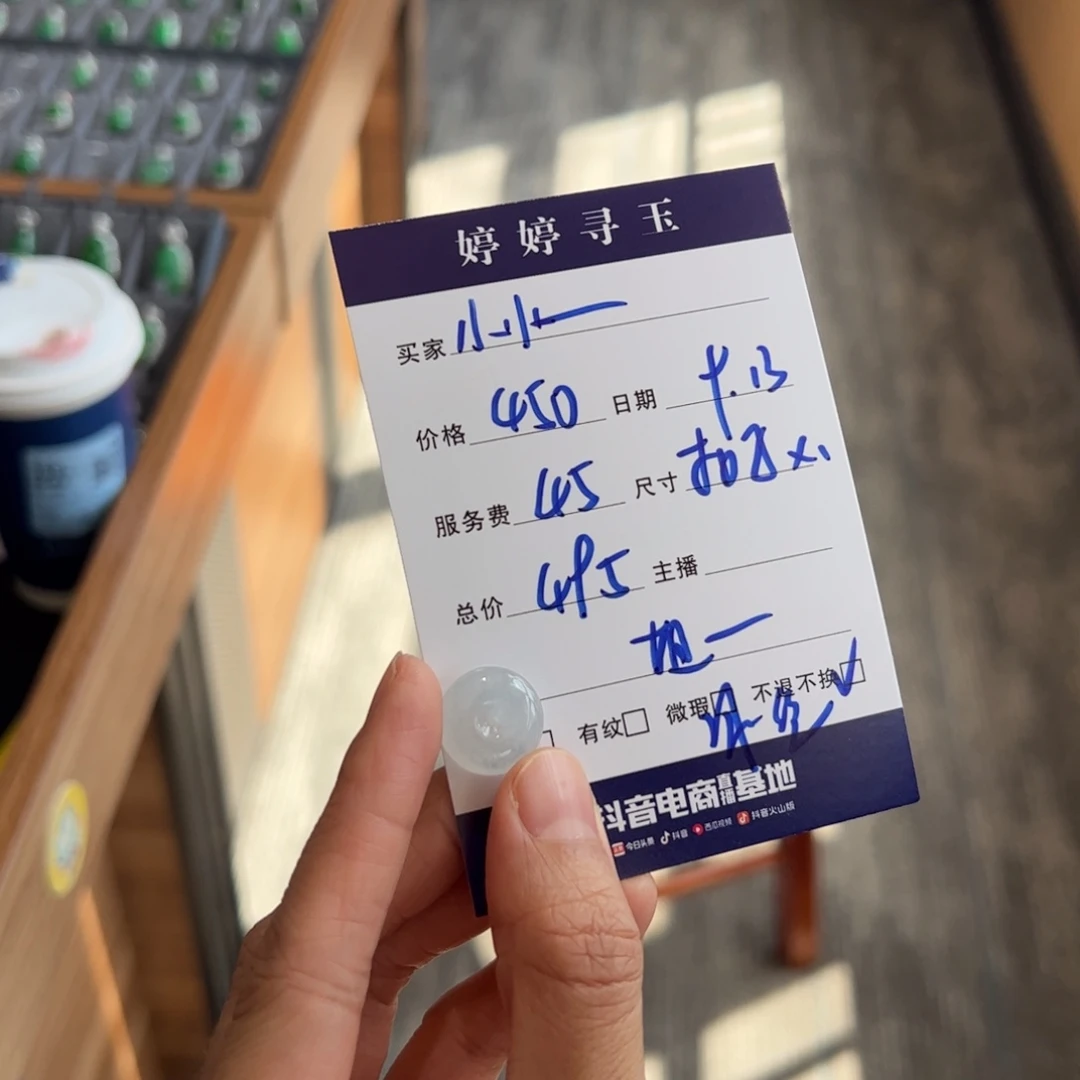 婷婷寻玉
买家 小小一
价格 450 日期 9.13
服务费 45 尺寸 扣子×1
总价 495 主播
有纹 微瑕 不退不换 ✓
抖音电商直播基地
今日头条 抖音 西瓜视频 抖音火山版